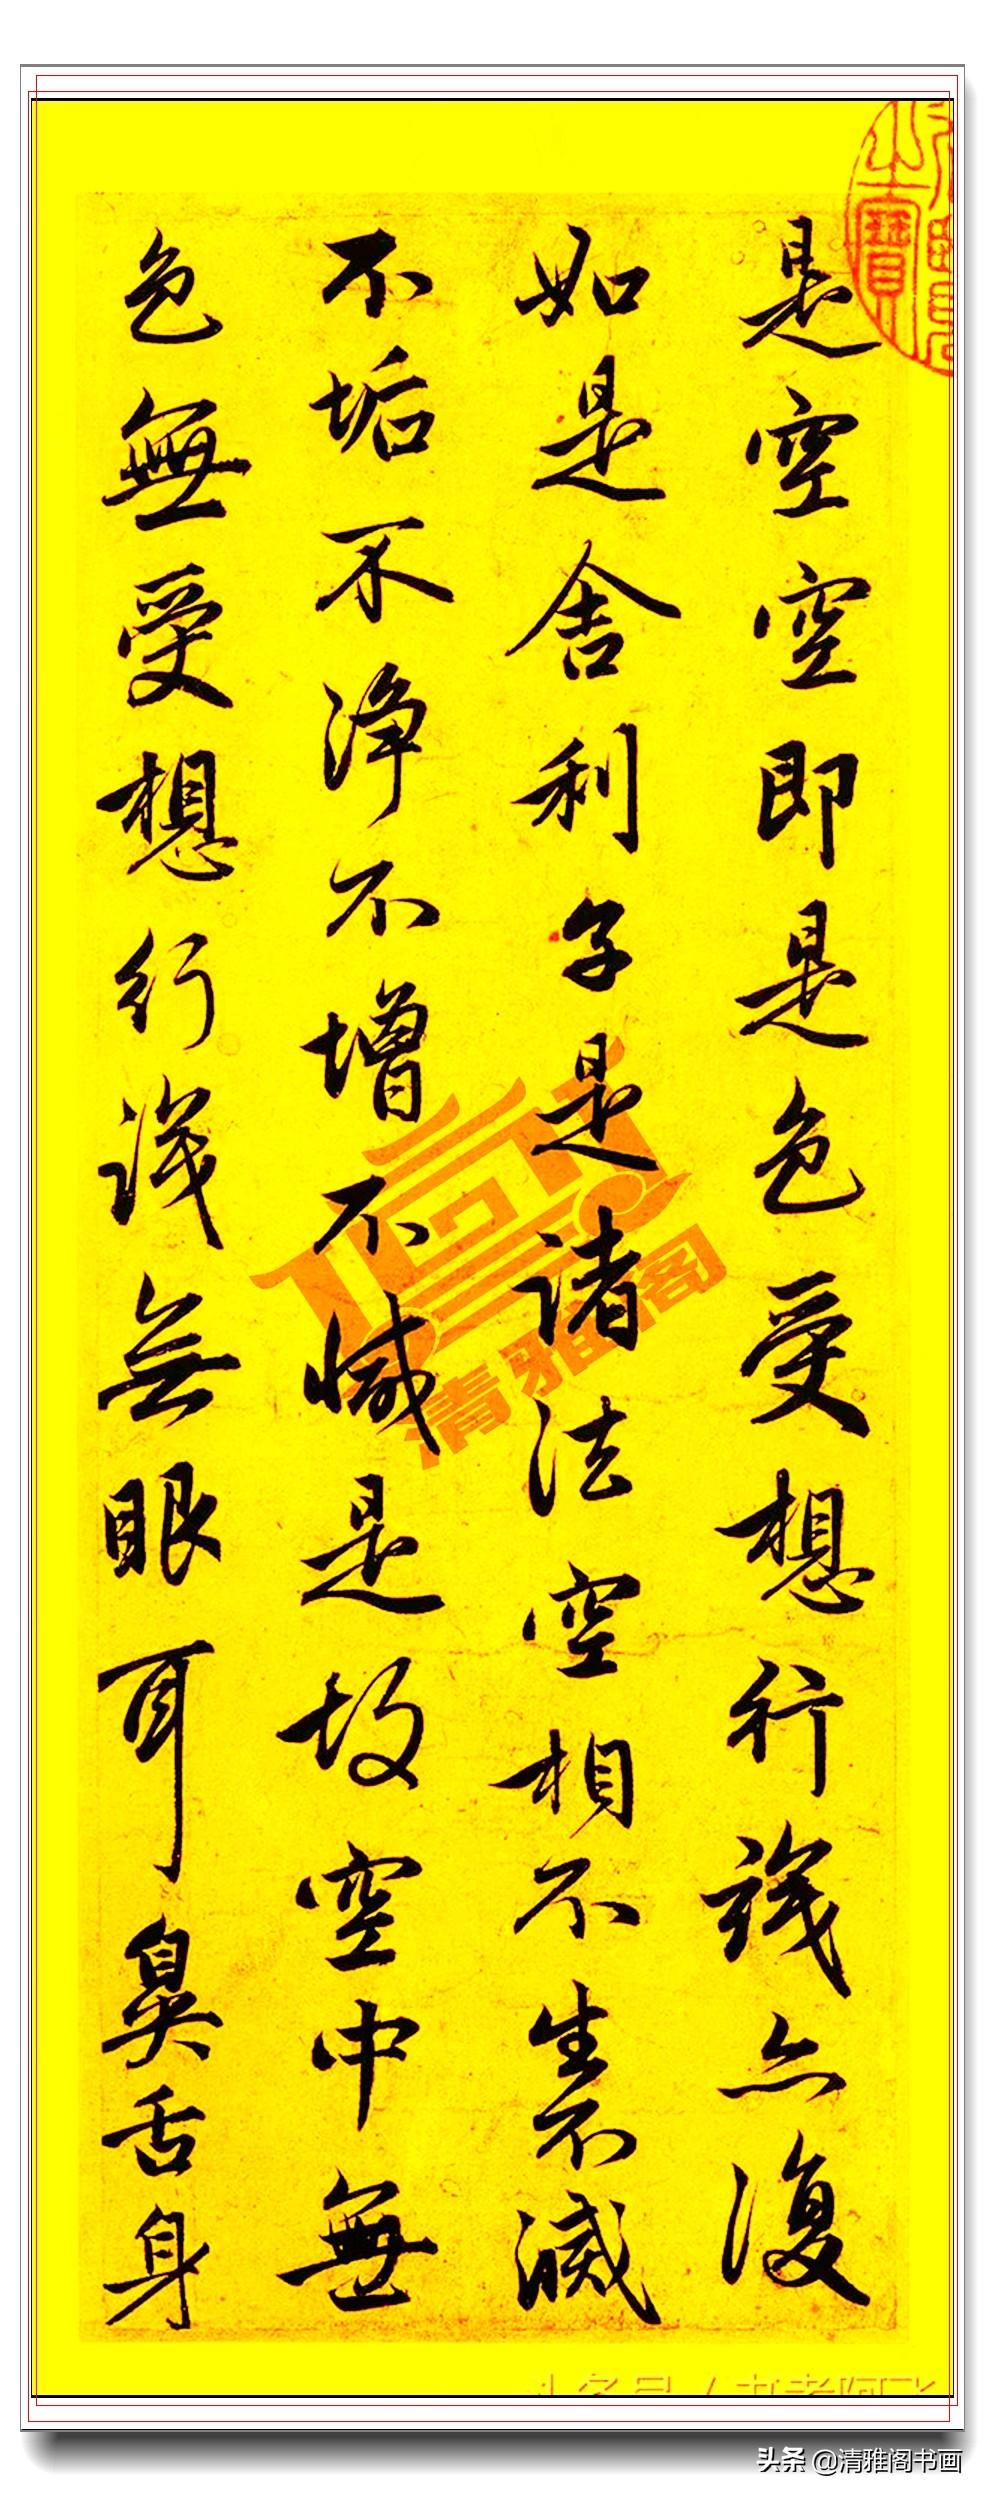 是空空即是色受想行識亦復
如是舍利子是諸法空相不生不滅
不垢不净不增不減是故空中無
色無受想行識無眼耳鼻舌身
清雅阁
头条 @清雅阁书画